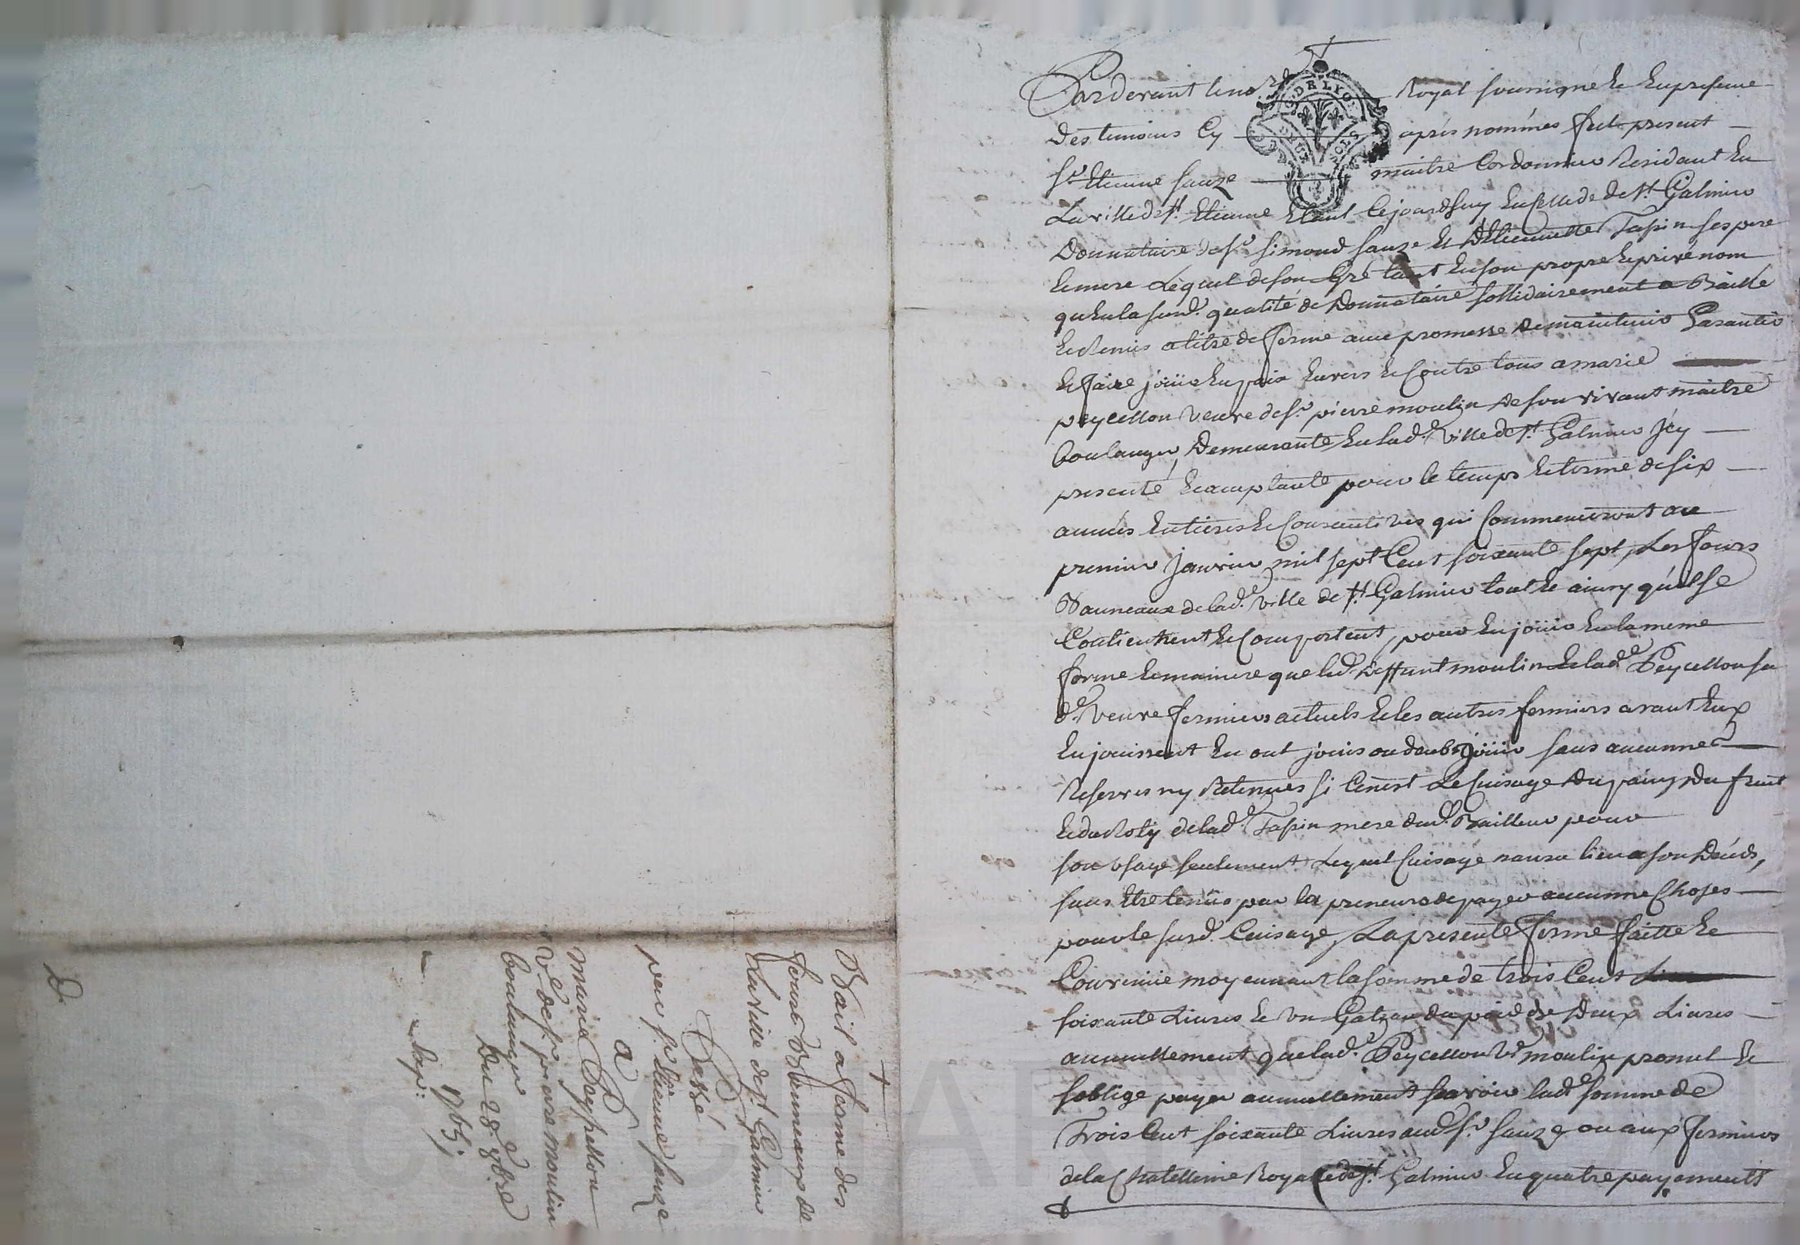 Pardevant le no.re Royal soussigné & en presence
des temoins cy apres nommés fut present
Sr. Etienne Sauze maitre Cordonnier Residant en
La ville de St. Etienne Etant cejourdhuy en celle de St. Galmier
Donnataire de Sr. Simond Sauze & d'Etiennette Tassin ses pere
& mere Lequel de son Gré tant en son propre & privé nom
qu'en la susd. qualité de Donnataire sollidairement a Baillé
& Remis a titre de ferme avec promesse de maintenir Garantir
& faire jouir en paix envers & Contre tous a marie
peycellon veuve de Sr. pierre moulin de son vivant maitre
boulanger, Demeurante en lad.e ville de St. Galmier Icy
presente & acceptante pour le temps & terme de six
années entieres & Consecutives qui Commenceront au
premier Janvier mil sept Cent soixante sept, Les fours
Banneaux de lad.e ville de St. Galmier tout & ainsy qu'ils se
Contiennent & Comportent, pour en jouir en la meme
forme & maniere que led. deffunt moulin & lad.e Peycellon sa
d.e veuve fermiers actuels & les autres fermiers avant Eux
en jouissent en ont jouis ou deub jouir sans aucunnes
Reserves ny Retenues si Cenest Le Cuisage du pain, du fruit
& du Roty de lad.e Tassin mere dud. Bailleur pour
son usage seulement Lequel Cuisage naura lieu a son Décés,
sans Etre tenüe par la preneure de payer aucunne Choses
pour le susd. Cuisage, La presente ferme faitte &
Convenüe moyennant la somme de trois Cent
soixante Livres & un Gateau du poid de Deux Livres
annuellement que lad.e Peycellon Ve. moulin promet &
s'oblige payer annuellement scavoir lad.e somme de
Trois Cent soixante Livres aud. Sr. Sauze ou aux fermiers
de la Chatellenie Royalle de St. Galmier en quatre payements
+
Bail a ferme des
fours Banneaux de
La ville de St. Galmier
Passé
par Sr. Etienne Sauze
A
Marie Peyssellon
Ve. de Sr. piare moulin
boulanger
Du 28e. 8bre
1765
D.